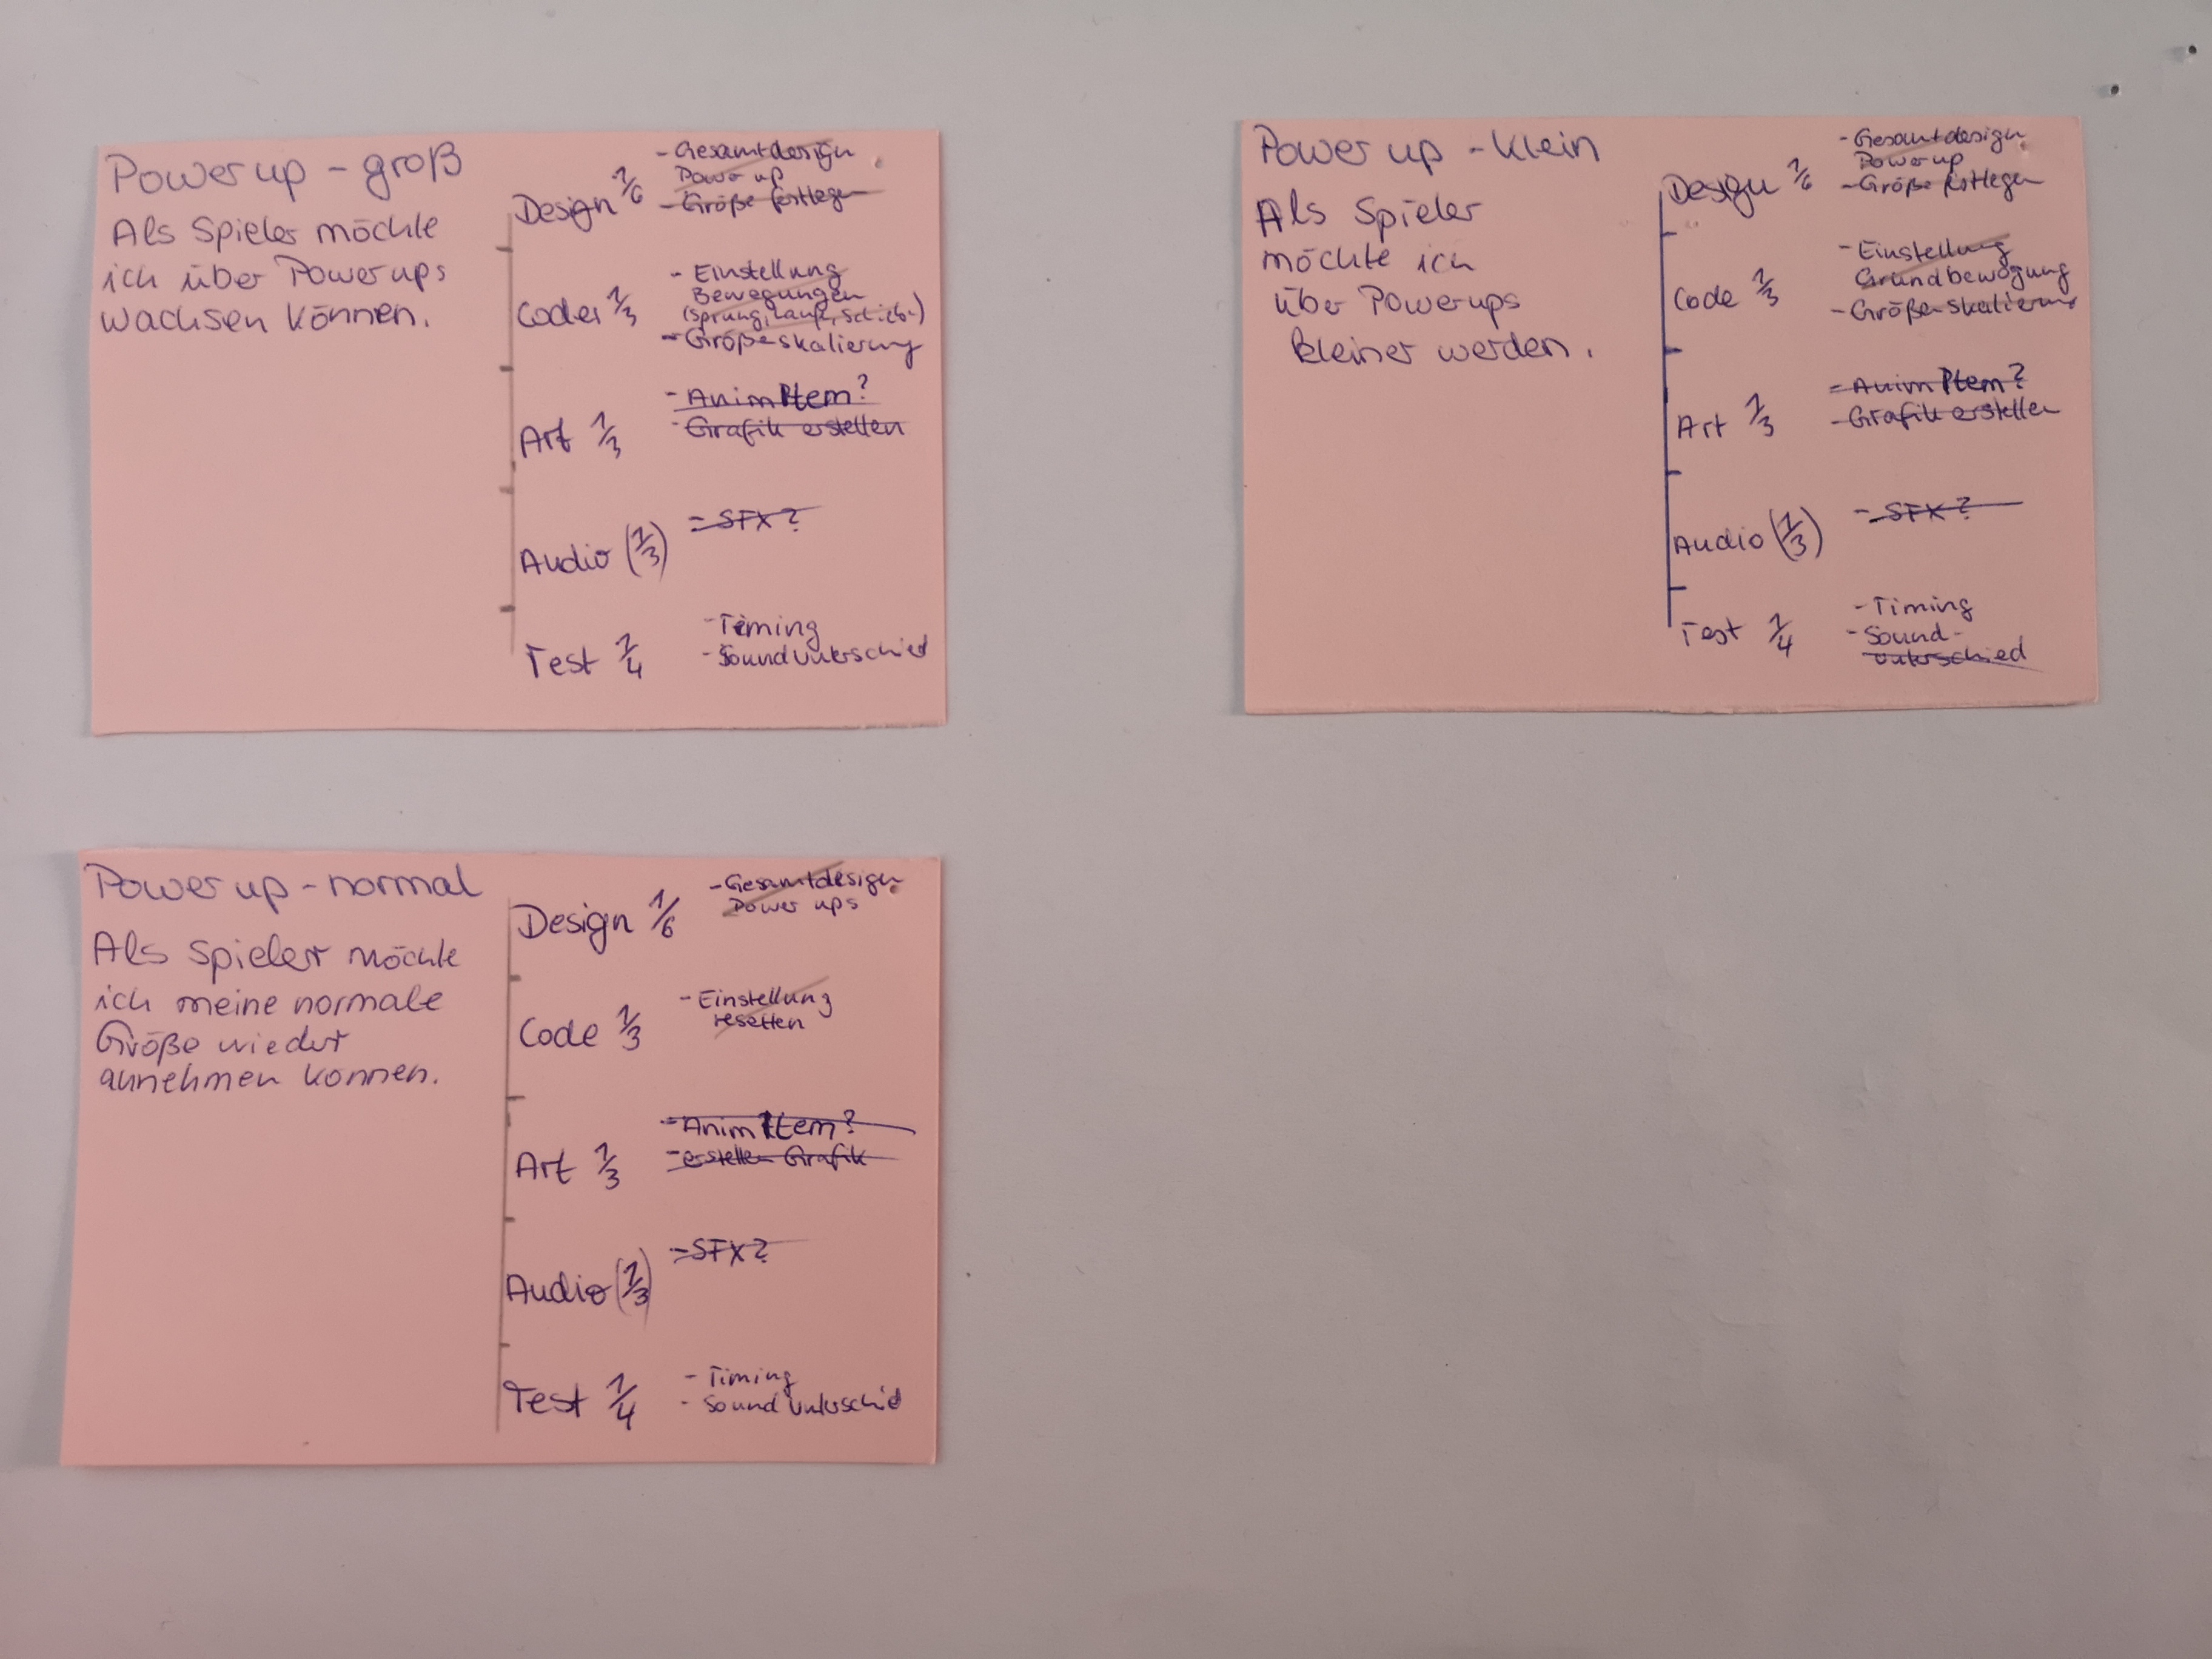 Power up - groß
Als Spieler möchte
ich über Power ups
wachsen können.
Design 1/6
- Gesamtdesign
Power up
- Größe festlegen
Code 1/3
- Einstellung
Bewegungen
(Sprung, Lauf, Schieb-)
- Größeskalierung
Art 1/3
- Anim Item?
- Grafik erstellen
Audio (1/3)
- SFX?
Test 1/4
- Timing
- Soundunterschied
Power up - klein
Als Spieler
möchte ich
über Powerups
kleiner werden.
Design 1/6
- Gesamtdesign
Power up
- Größe festlegen
Code 1/3
- Einstellung
Grundbewegung
- Größenskalierung
Art 1/3
- Anim Item?
- Grafik erstellen
Audio (1/3)
- SFX?
Test 1/4
- Timing
- Sound-
unterschied
Power up - normal
Als Spieler möchte
ich meine normale
Größe wieder
annehmen können.
Design 1/6
- Gesamtdesign
Power ups
Code 1/3
- Einstellung
resetten
Art 1/3
- Anim Item?
- erstellen Grafik
Audio (1/3)
- SFX?
Test 1/4
- Timing
- Soundunterschied